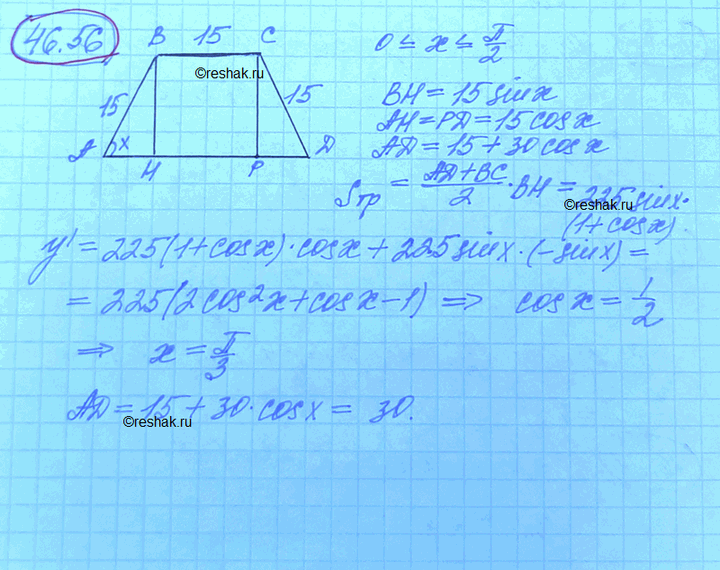 46.56
B 15 C
0 ≤ x ≤ π/2
©reshak.ru
15 15
BH = 15 sin x
AH = PD = 15 cos x
A x H P D
AD = 15 + 30 cos x
Sтр = (AD + BC)/2 · BH = 225 sin x ·
©reshak.ru
(1 + cos x).
y' = 225(1 + cos x) · cos x + 225 sin x · (- sin x) =
= 225(2 cos² x + cos x - 1) ⇒ cos x = 1/2
⇒ x = π/3
AD = 15 + 30 · cos x = 30.
©reshak.ru